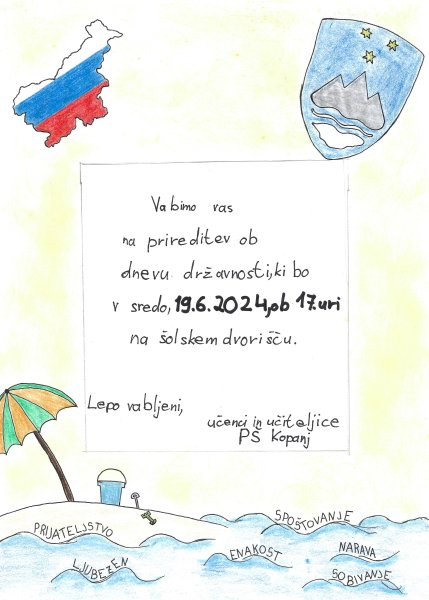 Vabimo vas
na prireditev ob
dnevu državnosti,ki bo
v sredo, 19.6.2024,ob 17.uri
na šolskem dvorišču.
Lepo vabljeni,
učenci in učiteljice
PŠ Kopanj
SPOŠTOVANJE
PRIJATELJSTVO
ENAKOST
NARAVA
LJUBEZEN
SOBIVANJE